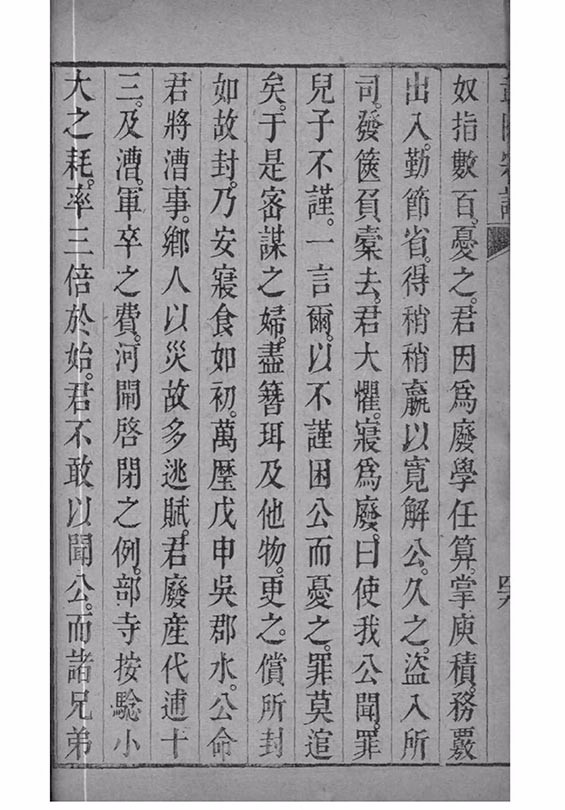 奴指數百。憂之。君因爲廢學任算。掌庾積。務覈
出入。勤節省。得稍稍嬴以寬解公。久之。盜入所
司。發篋負橐去。君大懼。寢爲廢。曰使我公聞。罪
兒子不謹。一言爾。以不謹困公而憂之。罪莫逭
矣。于是密謀之婦。盡簪珥及他物。更之。償所封
如故封。乃安寢食如初。萬曆戊申吳郡水。公命
君將漕事。鄉人以災故多逃賦。君廢産代逋十
三。及漕。軍卒之費。河閘啓閉之例。部寺按騐小
大之耗。率三倍於始。君不敢以聞公。而諸兄弟